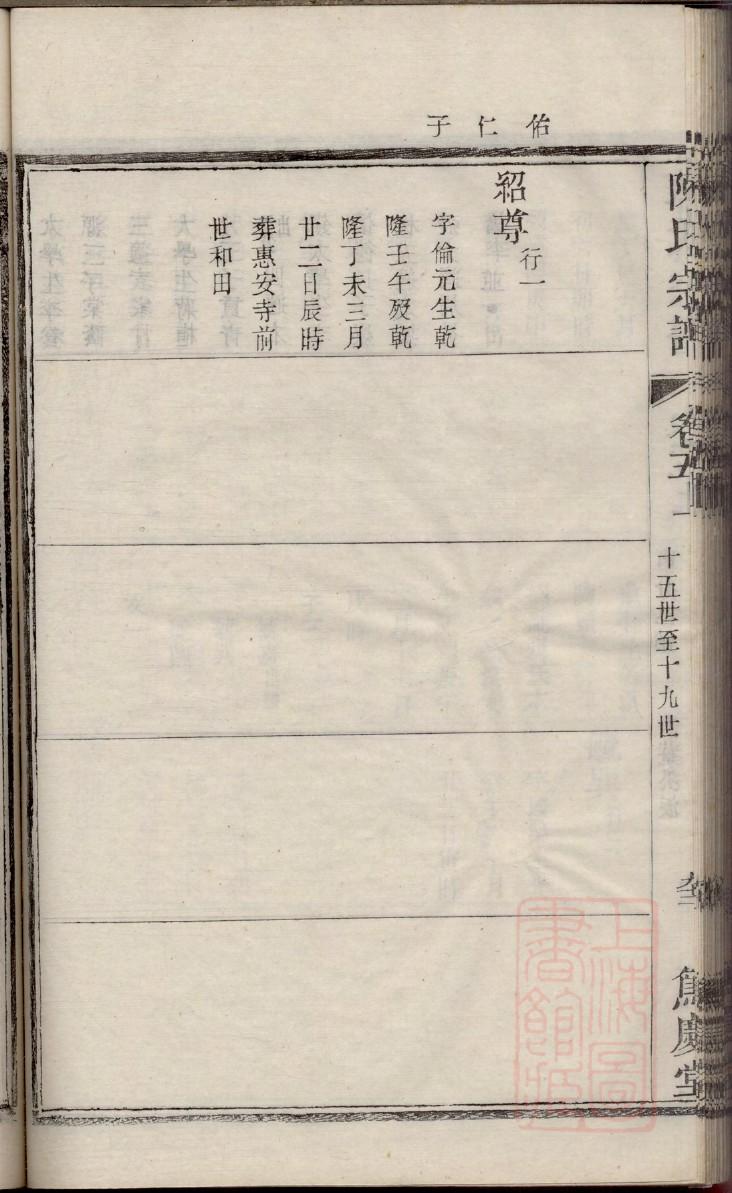 佑仁子
紹尊行一
字倫元生乾
隆壬午歿乾
隆丁未三月
廿二日辰時
葬惠安寺前
世和田
陳氏宗譜
卷五上
十五世至十九世
上海圖書館藏